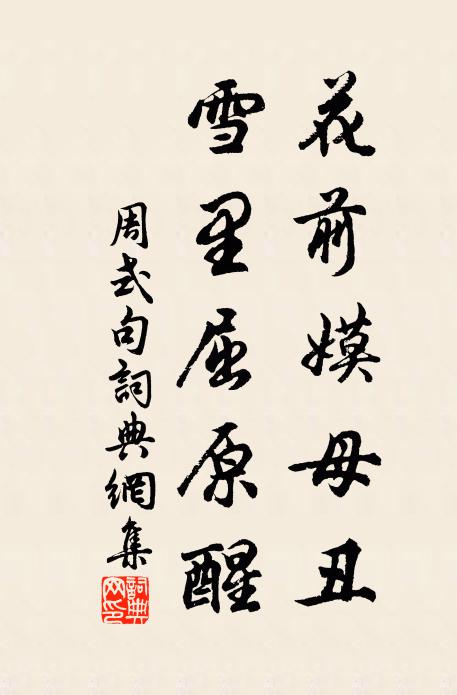 花前嫫母丑
雪里屈原醒
周式句詞典網集
詞典网印